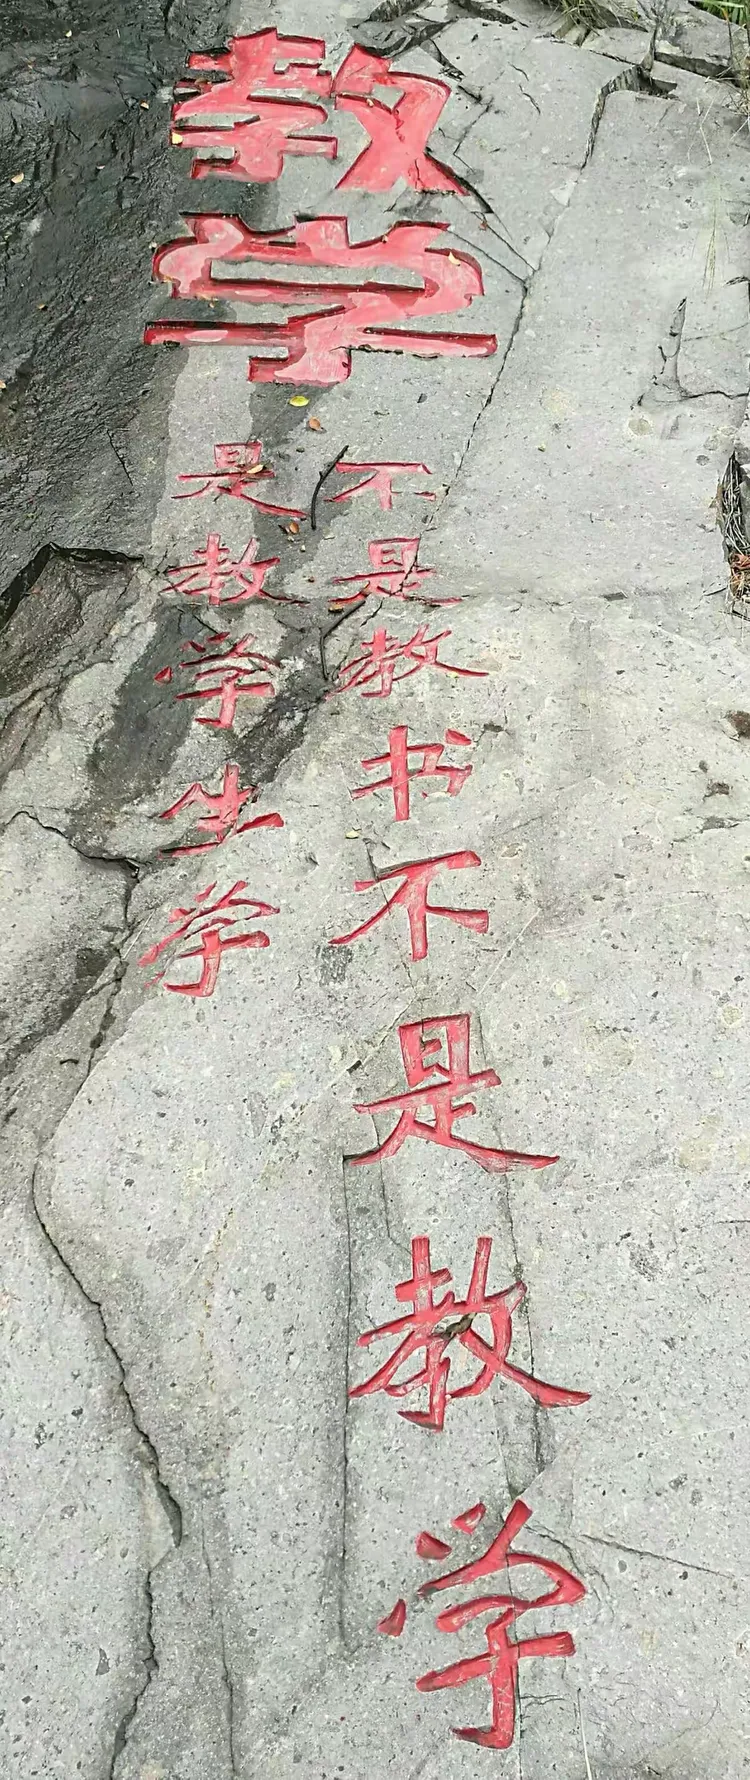 教学
不是教书不是教学
是教学生学